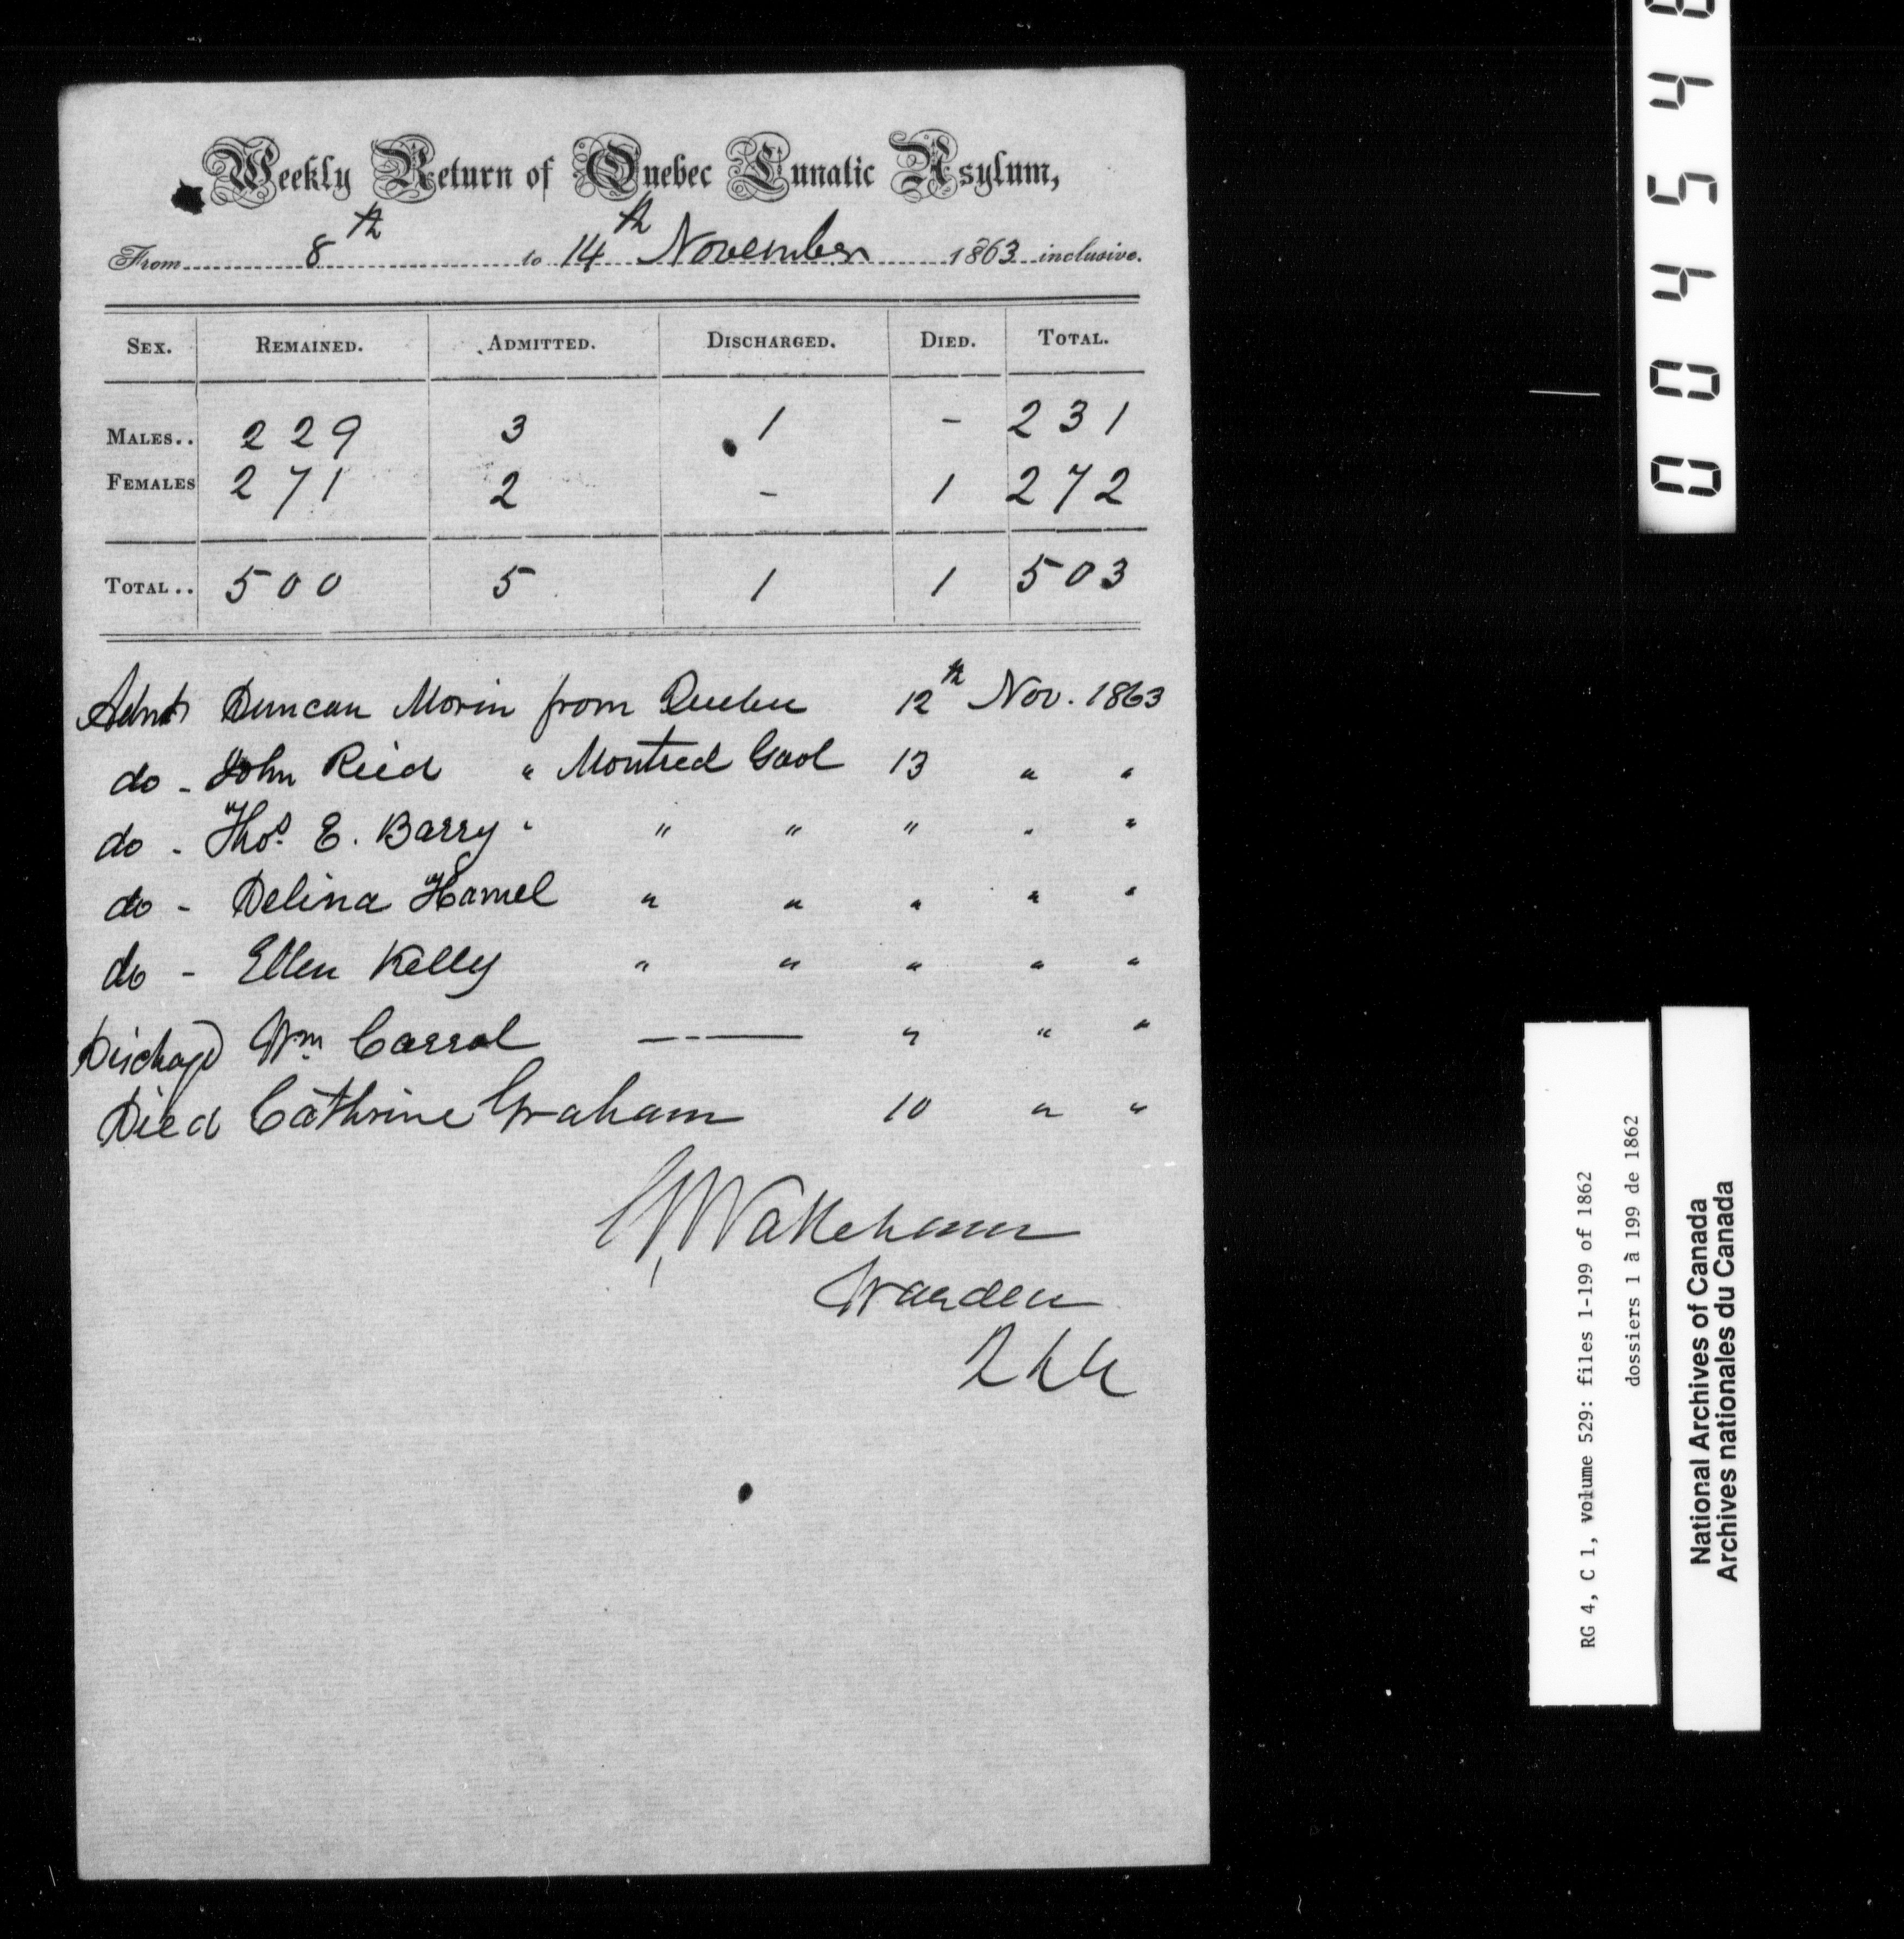 Weekly Return of Quebec Lunatic Asylum,
From 8th to 14th November 1863 inclusive.
SEX. REMAINED. ADMITTED. DISCHARGED. DIED. TOTAL.
MALES.. 229 3 1 - 231
FEMALES 271 2 - 1 272
TOTAL.. 500 5 1 1 503
Duncan Morin from Quebec 12th Nov. 1863
do - John Reid " Montreal Gaol 13 " "
do - Thos. E. Barry " " " " " "
do - Delina Hamel " " " " "
do - Ellen Kelly " " " " "
Wm Carrol — - — " " "
Died Cathrine Graham 10 " "
Wakeham
Warden
00454
RG 4, C 1, volume 529: files 1-199 of 1862
dossiers 1 à 199 de 1862
National Archives of Canada
Archives nationales du Canada